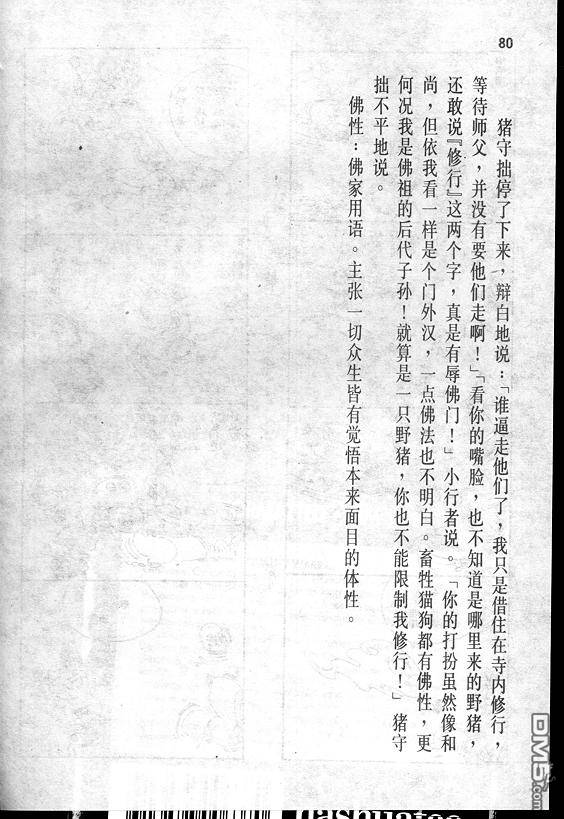 80
猪守拙停了下来，辩白地说：「谁逼走他们了，我只是借住在寺内修行，
等待师父，并没有要他们走啊！」「看你的嘴脸，也不知道是哪里来的野猪，
还敢说『修行』这两个字，真是有辱佛门！」小行者说。「你的打扮虽然像和
尚，但依我看一样是个门外汉，一点佛法也不明白。畜牲猫狗都有佛性，更
何况我是佛祖的后代子孙！就算是一只野猪，你也不能限制我修行！」猪守
拙不平地说。
佛性：佛家用语。主张一切众生皆有觉悟本来面目的体性。
DM5.com